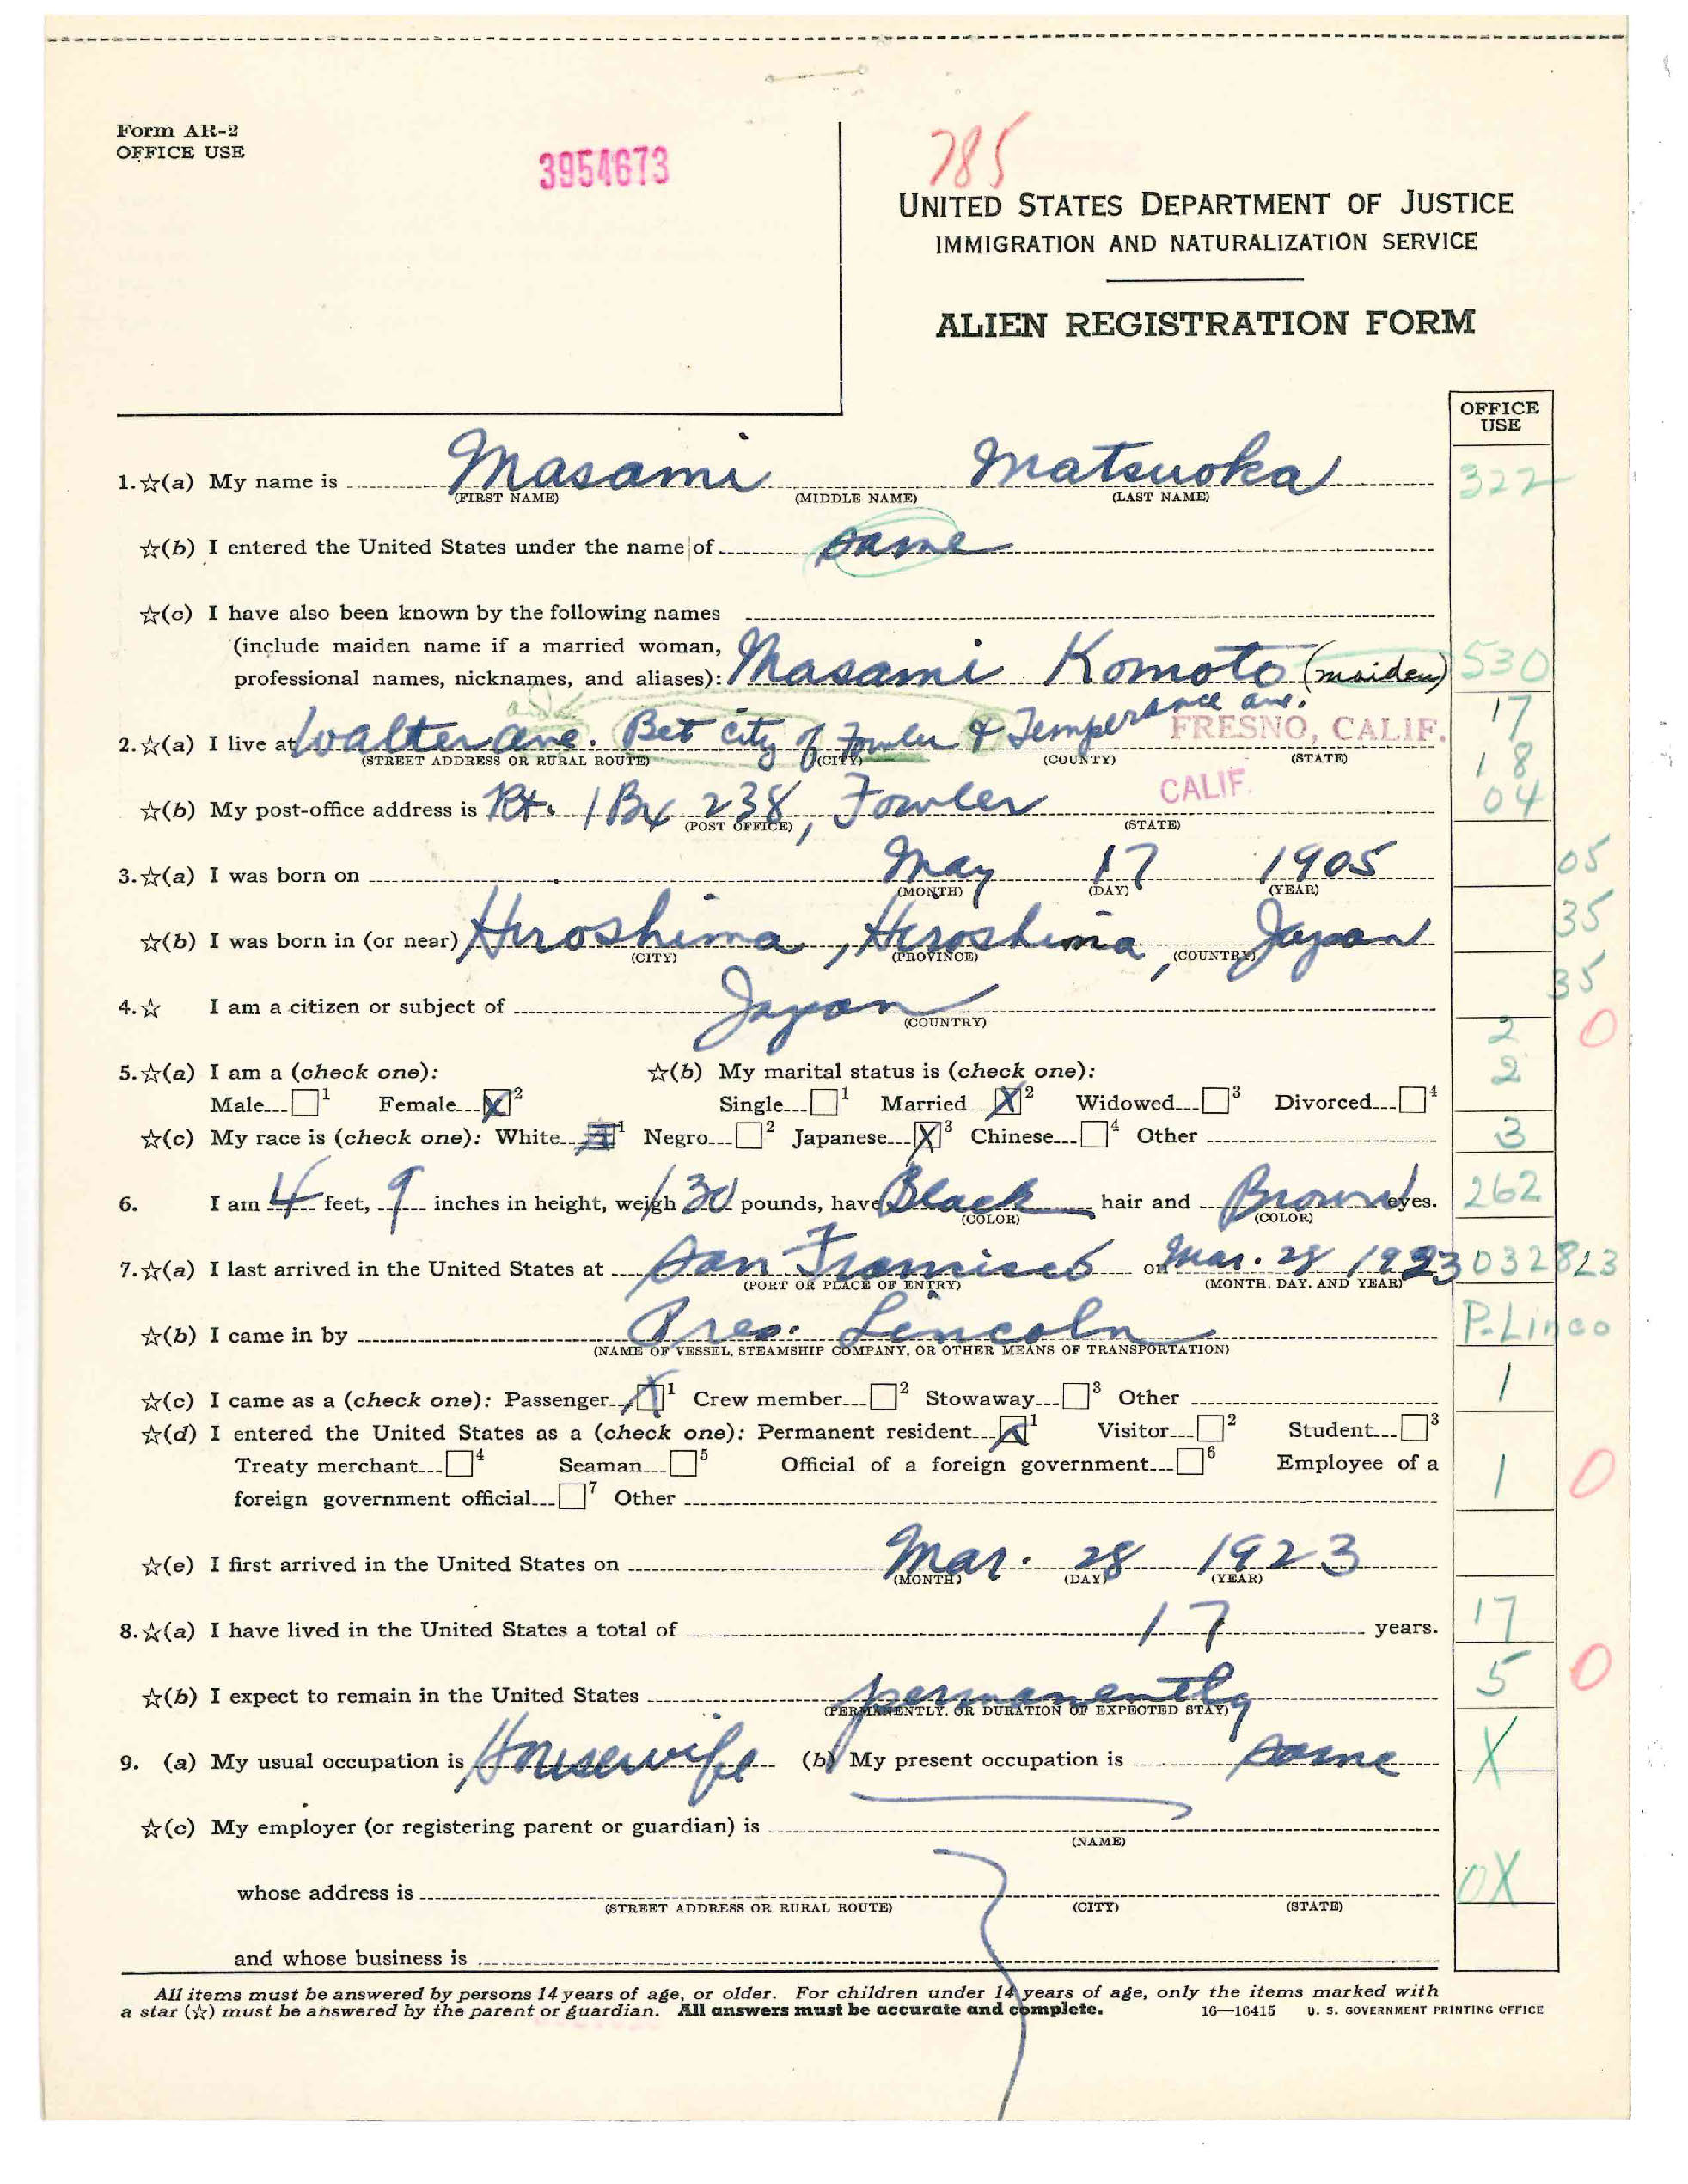 Form AR-2
OFFICE USE
3954673
785
UNITED STATES DEPARTMENT OF JUSTICE
IMMIGRATION AND NATURALIZATION SERVICE
ALIEN REGISTRATION FORM
OFFICE USE
1. ☆(a) My name is Masami Matsuoka 322
(FIRST NAME) (MIDDLE NAME) (LAST NAME)
☆(b) I entered the United States under the name of same
☆(c) I have also been known by the following names
(include maiden name if a married woman,
professional names, nicknames, and aliases): Masami Komoto (maiden) 530
2. ☆(a) I live at Walter ave. Bet city of Fowler & Temperance ave. FRESNO, CALIF. 17
(STREET ADDRESS OR RURAL ROUTE) (CITY) (COUNTY) (STATE) 18
☆(b) My post-office address is Rt. 1 Bx 238, Fowler CALIF. 04
(POST OFFICE) (STATE)
3. ☆(a) I was born on May 17 1905 05
(MONTH) (DAY) (YEAR)
☆(b) I was born in (or near) Hiroshima, Hiroshima, Japan 35
(CITY) (PROVINCE) (COUNTRY)
4. ☆ I am a citizen or subject of Japan 35
(COUNTRY) 2 0
5. ☆(a) I am a (check one): ☆(b) My marital status is (check one): 2
Male ☐1 Female ☒2 Single ☐1 Married ☒2 Widowed ☐3 Divorced ☐4
☆(c) My race is (check one): White 1 Negro ☐2 Japanese ☒3 Chinese ☐4 Other 3
6. I am 4 feet, 9 inches in height, weigh 130 pounds, have Black hair and Brown eyes. 262
(COLOR) (COLOR)
7. ☆(a) I last arrived in the United States at San Francisco on Mar. 28 1923 032823
(PORT OR PLACE OF ENTRY) (MONTH, DAY, AND YEAR)
☆(b) I came in by Pres. Lincoln P-Linco
(NAME OF VESSEL, STEAMSHIP COMPANY, OR OTHER MEANS OF TRANSPORTATION)
☆(c) I came as a (check one): Passenger ☒1 Crew member ☐2 Stowaway ☐3 Other 1
☆(d) I entered the United States as a (check one): Permanent resident ☒1 Visitor ☐2 Student ☐3
Treaty merchant ☐4 Seaman ☐5 Official of a foreign government ☐6 Employee of a 1 0
foreign government official ☐7 Other
☆(e) I first arrived in the United States on Mar. 28 1923
(MONTH) (DAY) (YEAR)
8. ☆(a) I have lived in the United States a total of 17 years. 17
☆(b) I expect to remain in the United States permanently 5 0
(PERMANENTLY, OR DURATION OF EXPECTED STAY)
9. (a) My usual occupation is Housewife (b) My present occupation is same X
☆(c) My employer (or registering parent or guardian) is
(NAME)
whose address is 0X
(STREET ADDRESS OR RURAL ROUTE) (CITY) (STATE)
and whose business is
All items must be answered by persons 14 years of age, or older. For children under 14 years of age, only the items marked with
a star (☆) must be answered by the parent or guardian. All answers must be accurate and complete. 16—16415 U. S. GOVERNMENT PRINTING OFFICE